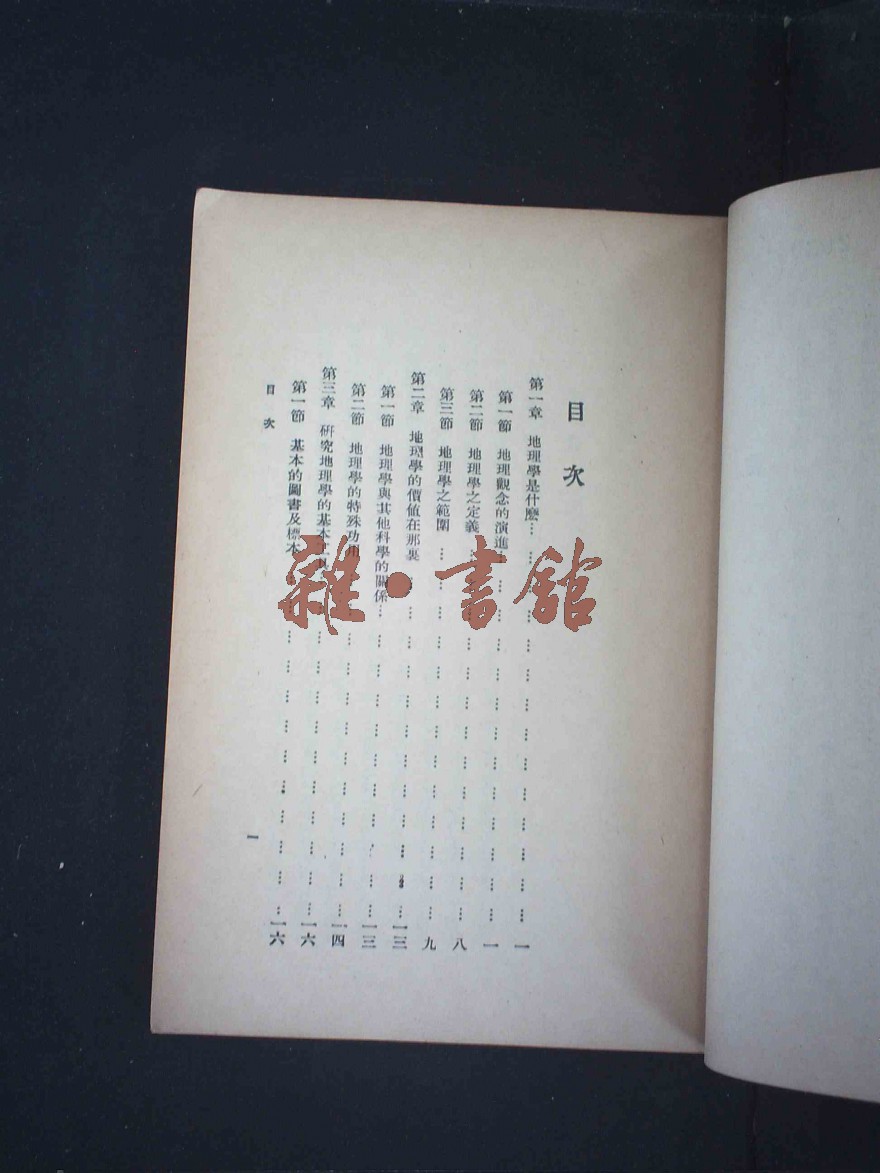 目次
第一章 地理學是什麽……一
第一節 地理觀念的演進……一
第二節 地理學之定義……八
第三節 地理學之範圍……九
第二章 地理學的價值在那裏……一三
第一節 地理學與其他科學的關係……一三
第二節 地理學的特殊功用……一四
第三章 研究地理學的基本工具……一六
第一節 基本的圖書及標本……一六
目次
一
雜·書館